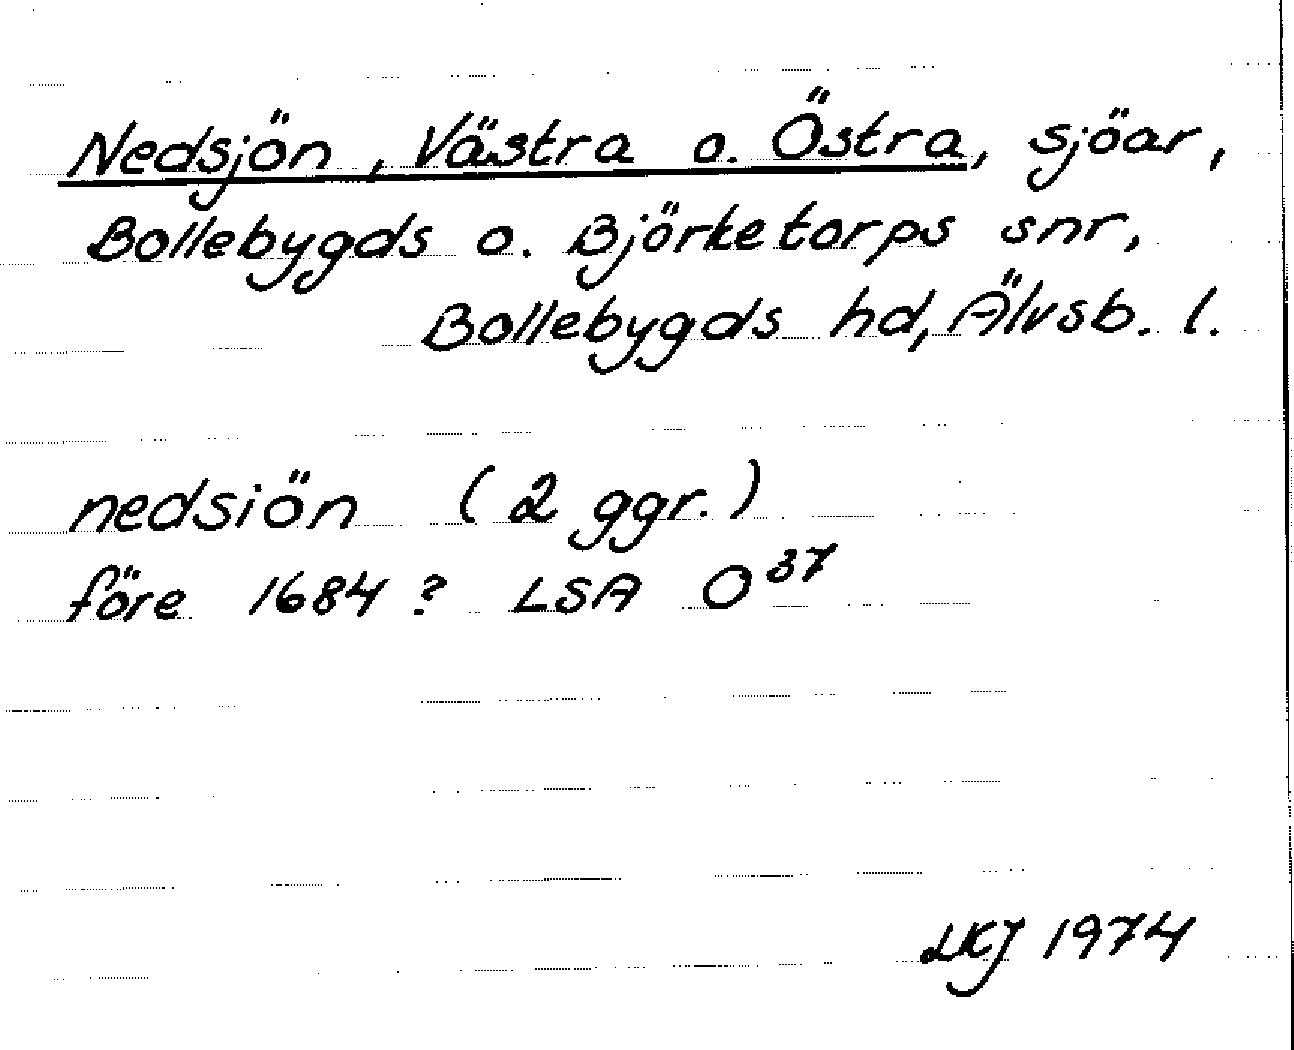 Nedsjön, Västra o. Östra, sjöar,
Bollebygds o. Björketorps snr,
Bollebygds hd, Älvsb. l.
nedsiön (2 ggr.)
före 1684? LSA O³⁷
LKJ 1974